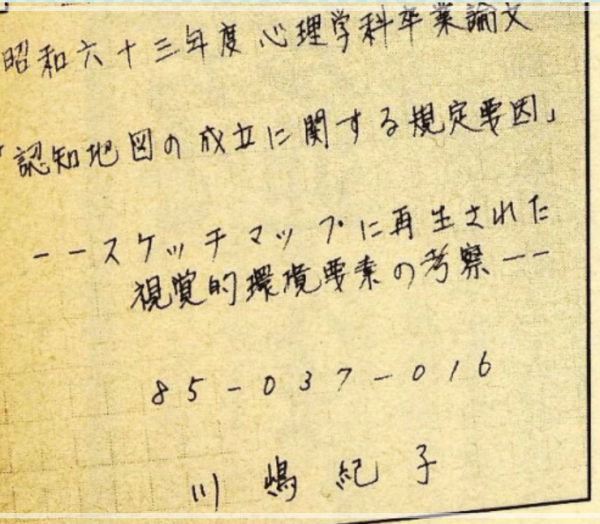 昭和六十三年度心理学科卒業論文
「認知地図の成立に関する規定要因」
ーースケッチマップに再生された
視覚的環境要素の考察ーー
85-037-016
川嶋紀子